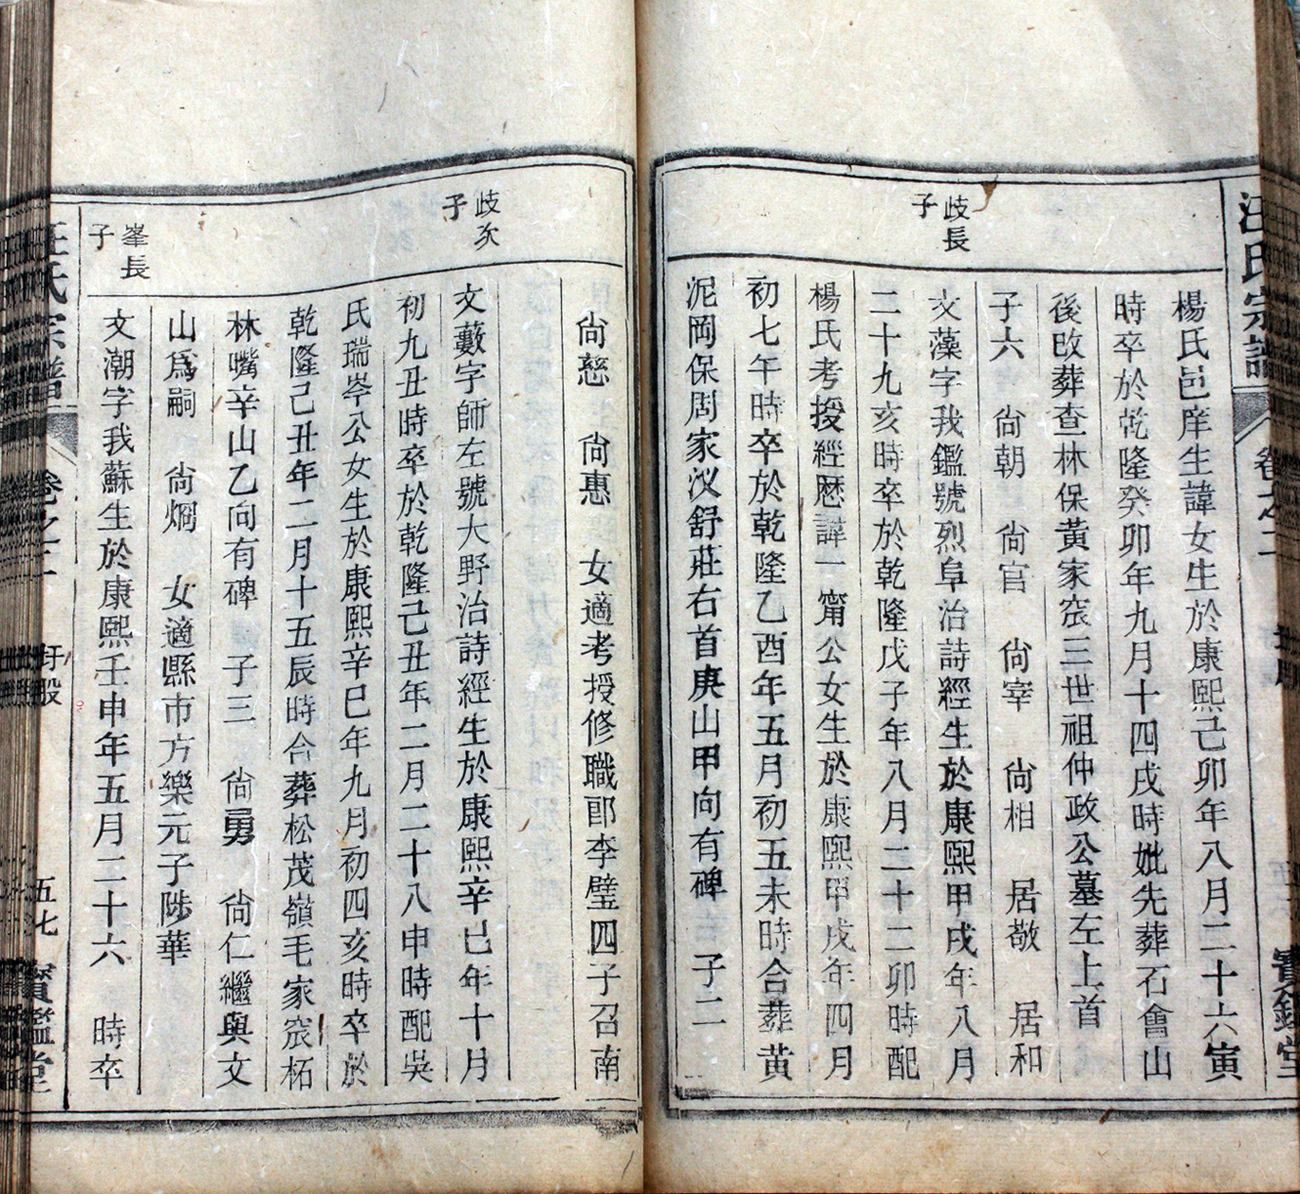 汪氏宗譜
卷之二
楊氏邑庠生諱女生於康熙己卯年八月二十六寅
時卒於乾隆癸卯年九月十四戌時妣先葬石會山
後改葬查林保黃家宸三世祖仲政公墓左上首
子六 尙朝 尙官 尙宰 尙相 居敬 居和
歧長
子
文藻字我鑑號烈阜治詩經生於康熙甲戌年八月
二十九亥時卒於乾隆戊子年八月二十二卯時配
楊氏考授經歷諱一甯公女生於康熙甲戌年四月
初七午時卒於乾隆乙酉年五月初五未時合葬黃
泥岡保周家汊舒莊右首庚山甲向有碑 子二
尙慈 尙惠 女適考授修職郎李璧四子召南
歧次
子
文藪字師左號大野治詩經生於康熙辛巳年十月
初九丑時卒於乾隆己丑年二月二十八申時配吳
氏瑞岑公女生於康熙辛巳年九月初四亥時卒於
乾隆己丑年二月十五辰時合葬松茂嶺毛家宸柘
林嘴辛山乙向有碑 子三 尙勇 尙仁繼與文
山爲嗣 尙烱 女適縣市方樂元子陟華
峯長
子
文潮字我蘇生於康熙壬申年五月二十六 時卒
汪氏宗譜
卷之二
圩股
五七
寶鑑堂